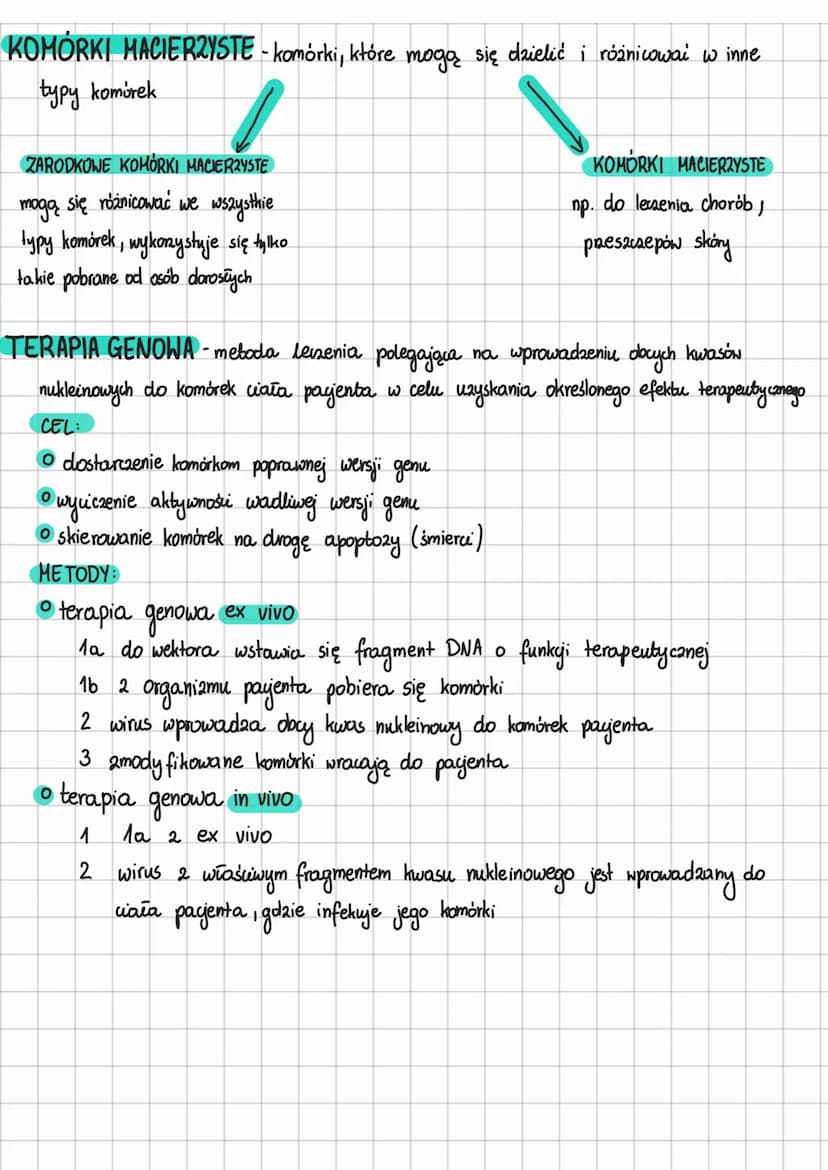 KOMÓRKI MACIERZYSTE - komórki, które mogą się dzielić i różnicować w inne
typy komórek
ZARODKOWE KOMÓRKI MACIERZYSTE
mogą się różnicować we wszystkie
typy komórek, wykorzystuje się tylko
takie pobrane od osób dorosłych
KOMÓRKI MACIERZYSTE
np. do leczenia chorób,
przeszczepów skóry
TERAPIA GENOWA - metoda leczenia polegająca na wprowadzeniu obcych kwasów
nukleinowych do komórek ciała pacjenta w celu uzyskania określonego efektu terapeutycznego
CEL:
○ dostarczenie komórkom poprawnej wersji genu
○ wyciczenie aktywności wadliwej wersji genu
○ skierowanie komórek na drogę apoptozy (śmierci)
METODY:
○ terapia genowa ex vivo
1a do wektora wstawia się fragment DNA o funkcji terapeutycznej
1b z organizmu pacjenta pobiera się komórki
2 wirus wprowadza obcy kwas nukleinowy do komórek pacjenta
3 zmodyfikowane komórki wracają do pacjenta
○ terapia genowa in vivo
1 1a z ex vivo
2 wirus z właściwym fragmentem kwasu nukleinowego jest wprowadzany do
ciała pacjenta, gdzie infekuje jego komórki